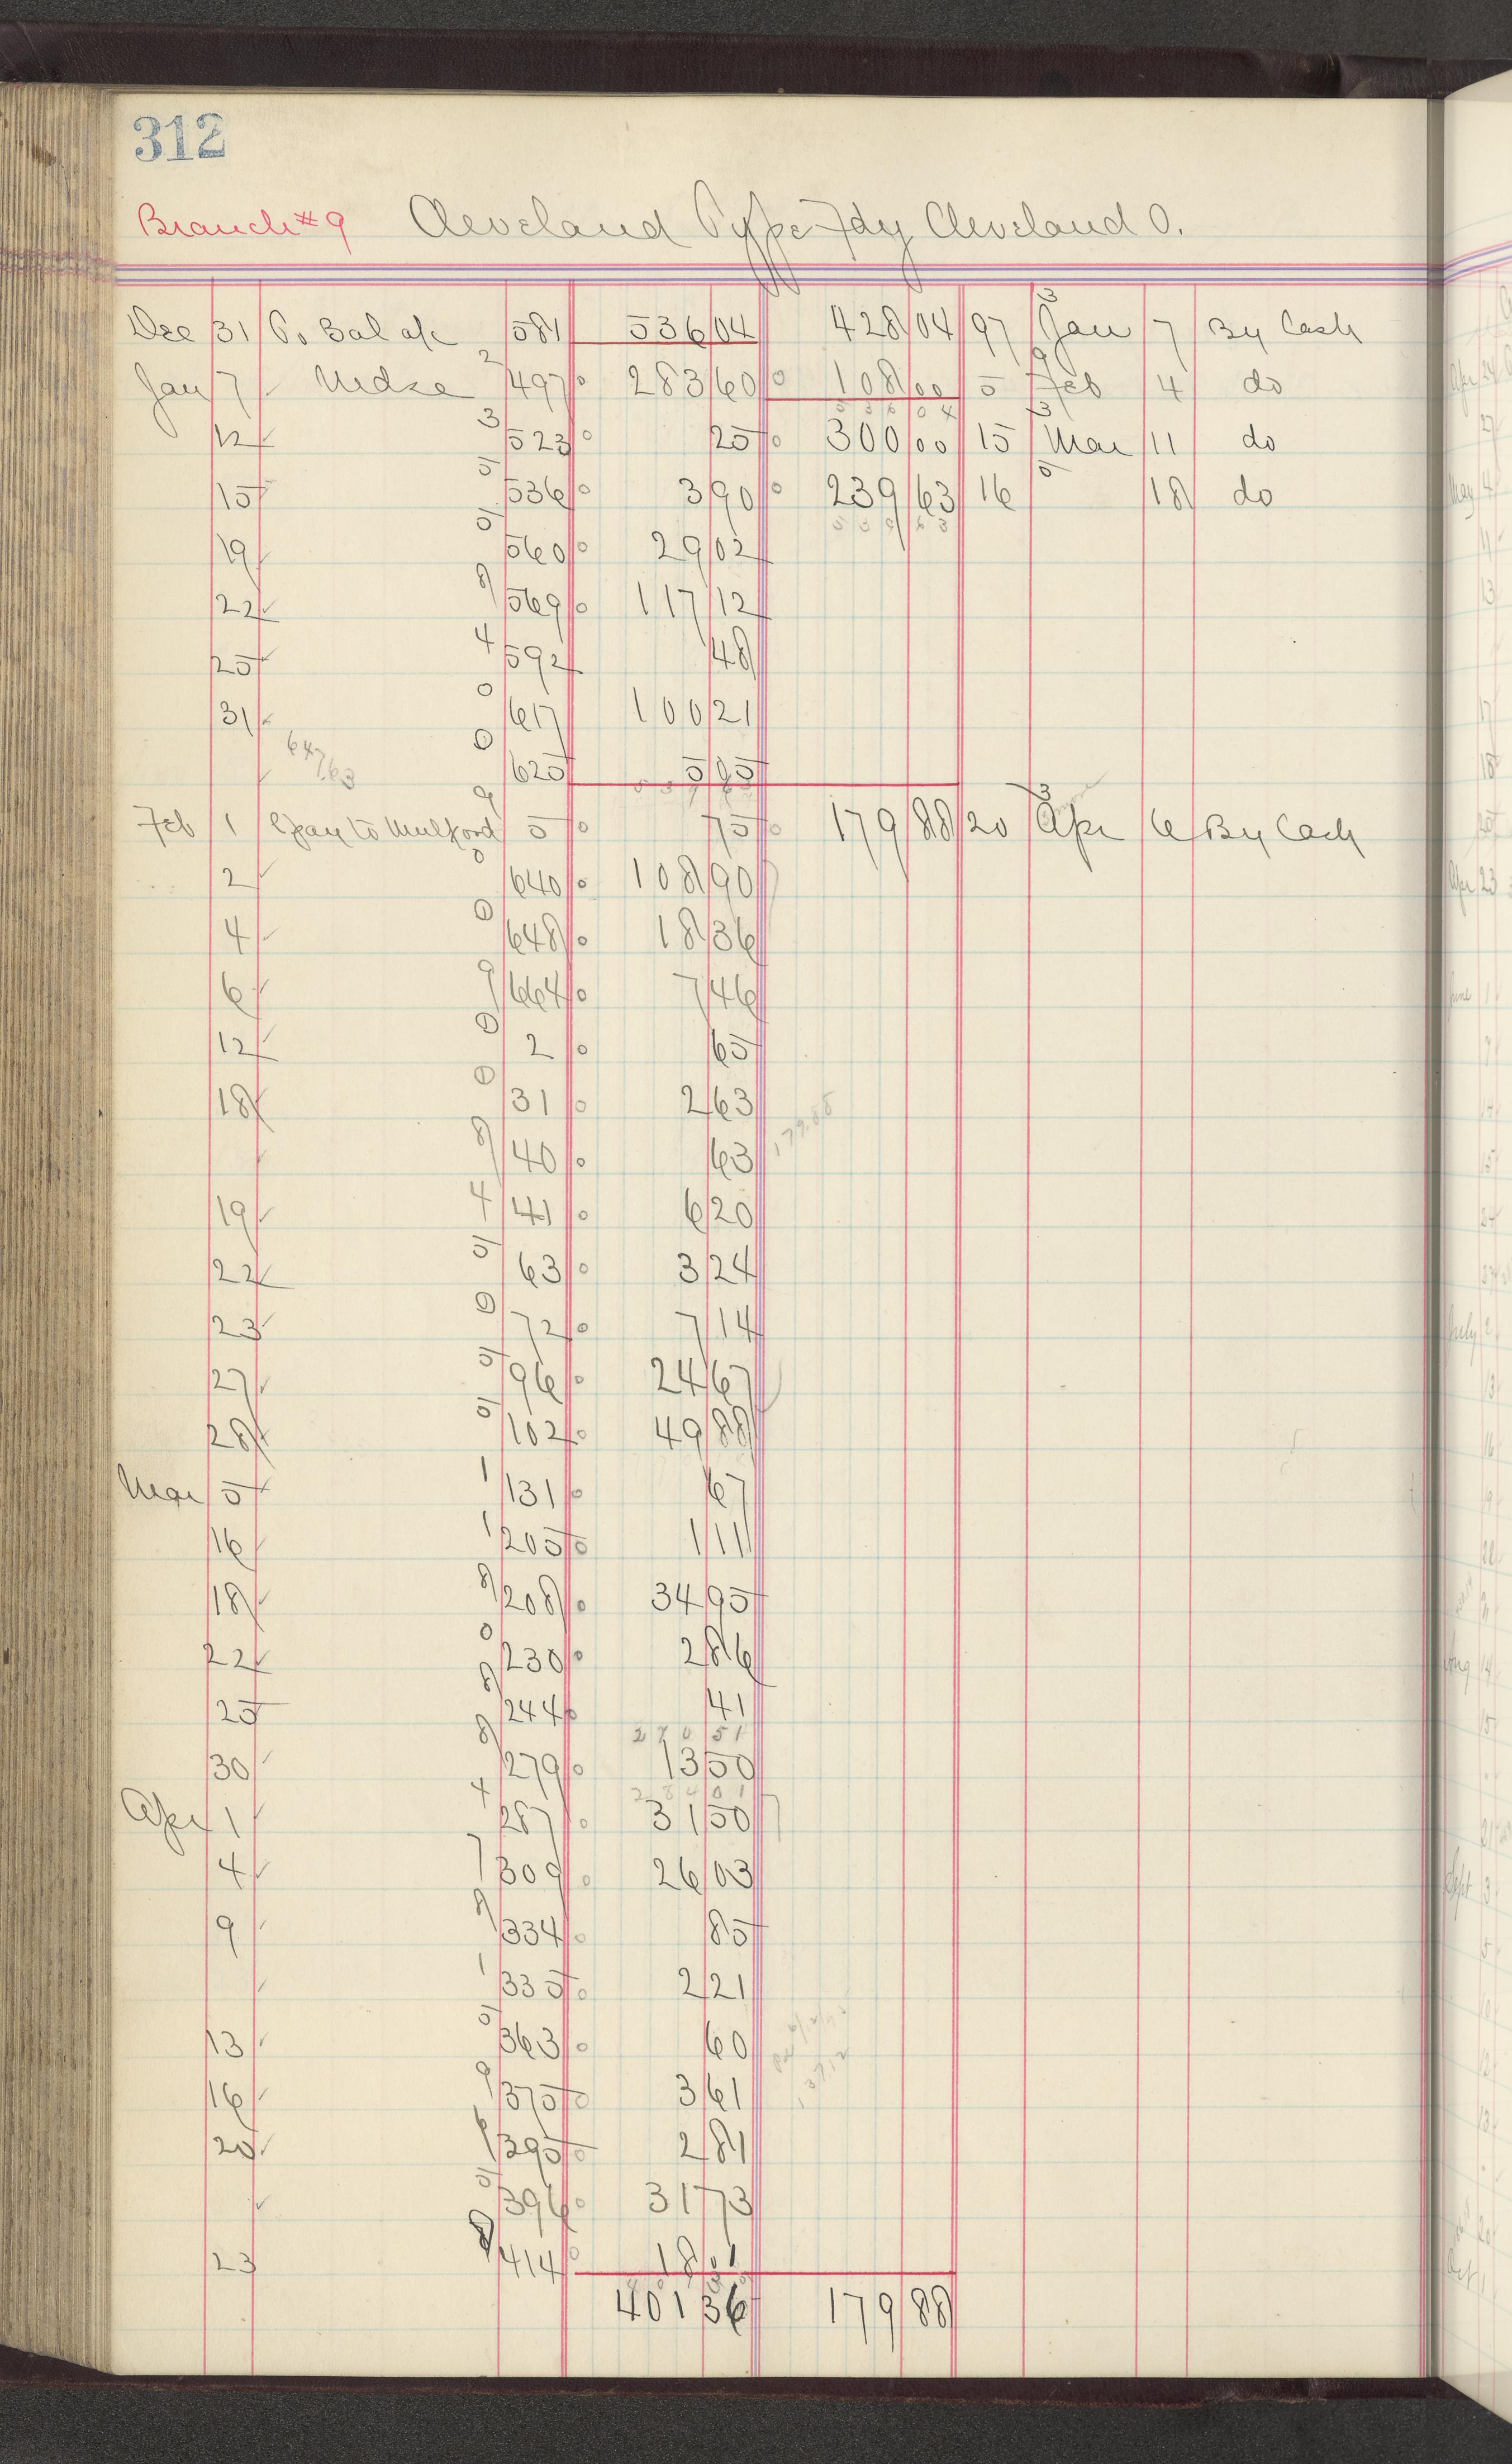 312
Branch #9 Cleveland Type Fdy Cleveland O.
Dec 31 To Bal a/c 581 536 04 428 04 97 3 Jan 7 By Cash
Jan 7 Mdse 2 497 283 60 108 00 5 9 Feb 4 do
53604
12 3 523 25 300 00 15 3 Mar 11 do
15 5 536 3 90 239 63 16 5 18 do
53963
19 5 560 29 02
22 8 569 117 12
25 4 592 48
31 0 617 100 21
647.63
0 625 5 95
539 63
Feb 1 to Mulford 9 5 75 179 88 20 3 Apr 6 By Cash
2 0 640 108 90
4 0 648 18 36
6 9 664 7 46
12 0 2 65
18 0 31 2 63
179.88
8 40 63
19 4 41 6 20
22 5 63 3 24
23 0 72 7 14
27 5 96 24 67
28 5 102 49 88
Mar 5 1 131 67
16 1 205 1 11
18 8 208 34 95
22 0 230 2 86
25 8 244 41
270 51
30 8 279 13 50
284 01
Apr 1 4 287 31 50
4 7 309 26 03
9 8 334 85
1 335 2 21
13 5 363 60
16 9 375 3 61
20 6 395 2 81
5 396 31 73
23 8 414 18 01
401 36 179 88